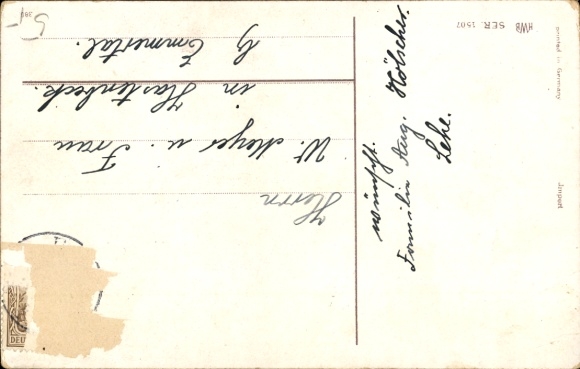 wünscht.
Familie Aug. Hölscher.
Lehe.
Herrn
W. Meyer u. Frau
in Hastenbeck.
b/ Emmertal.
HWB SER. 1507
printed in Germany
Import
5,-
DEU